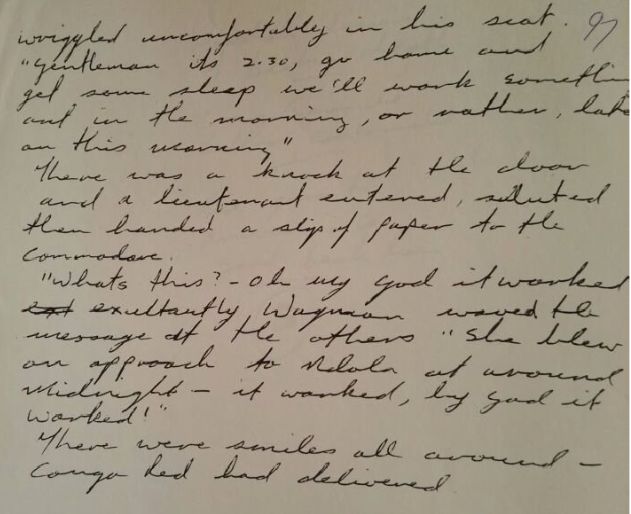 wriggled uncomfortably in his seat. 97
"Gentleman its 2.30, go home and
get some sleep we'll work somethin
out in the morning, or rather, late
on this morning"
There was a knock at the door
and a lieutenant entered, saluted
then handed a slip of paper to the
Commodore.
"Whats this? - Oh my god it worked
exultantly Wagman waved the
message at the others "She blew
on approach to Ndola at around
Midnight - it worked, by god it
worked!"
There were smiles all around -
Congo Red had delivered